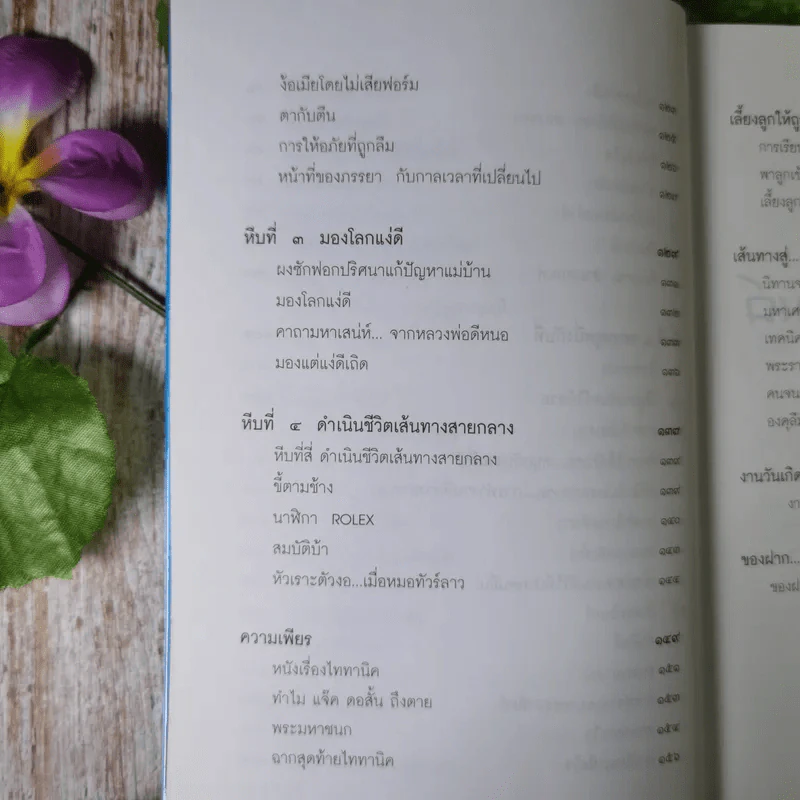 ง้อเมียโดยไม่เสียฟอร์ม ๑๒๓
ตากับตีน ๑๒๕
การให้อภัยที่ถูกลืม ๑๒๖
หน้าที่ของภรรยา กับกาลเวลาที่เปลี่ยนไป ๑๒๗
หีบที่ ๓ มองโลกแง่ดี ๑๒๙
ผงซักฟอกปริศนาแก้ปัญหาแม่บ้าน ๑๓๑
มองโลกแง่ดี ๑๓๒
คาถามหาเสน่ห์... จากหลวงพ่อดีหนอ ๑๓๓
มองแต่แง่ดีเถิด ๑๓๖
หีบที่ ๔ ดำเนินชีวิตเส้นทางสายกลาง ๑๓๗
หีบที่สี่ ดำเนินชีวิตเส้นทางสายกลาง ๑๓๙
ขี้ตามช้าง ๑๓๙
นาฬิกา ROLEX ๑๔๐
สมบัติบ้า ๑๔๓
หัวเราะตัวงอ...เมื่อหมอทัวร์ลาว ๑๔๔
ความเพียร ๑๔๙
หนังเรื่องไททานิค ๑๕๑
ทำไม แจ๊ค ดอสั้น ถึงตาย ๑๕๓
พระมหาชนก ๑๕๔
ฉากสุดท้ายไททานิค ๑๕๖
เลี้ยงลูกให้ถู
การเรีย
พาลูกเข้
เลี้ยงลูก
เส้นทางสู่...
นิทานจ
มหาเศ
เทคนิค
พระรา
คนจน
องคุลิม
งานวันเกิด
งา
ของฝาก...
ของฝ